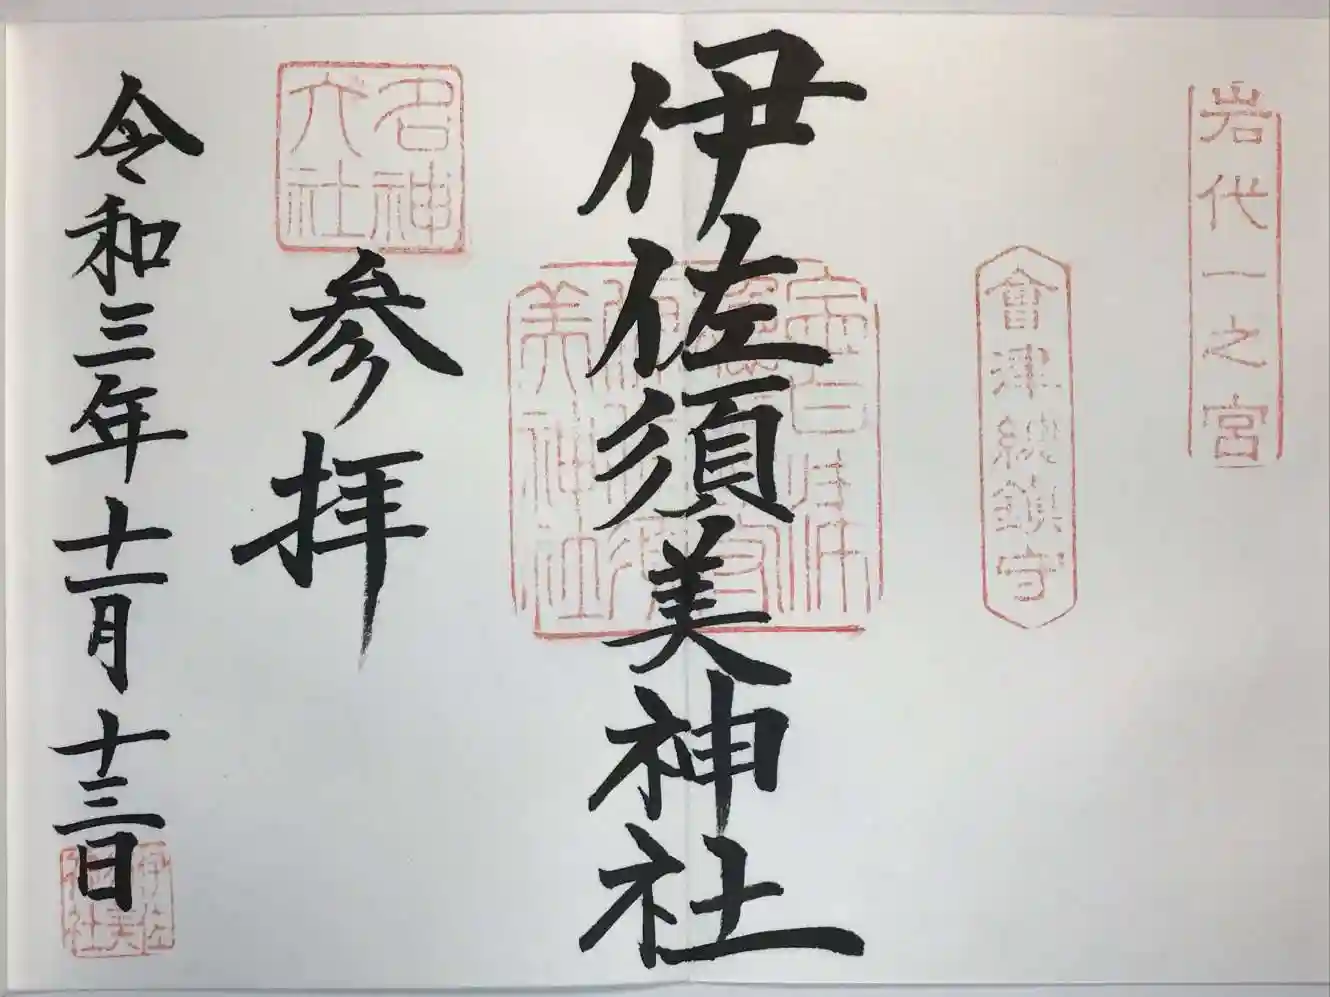 岩代一之宮
會津總鎮守
伊佐須美神社
名神大社
参拝
令和三年十一月十三日
伊佐須美神社